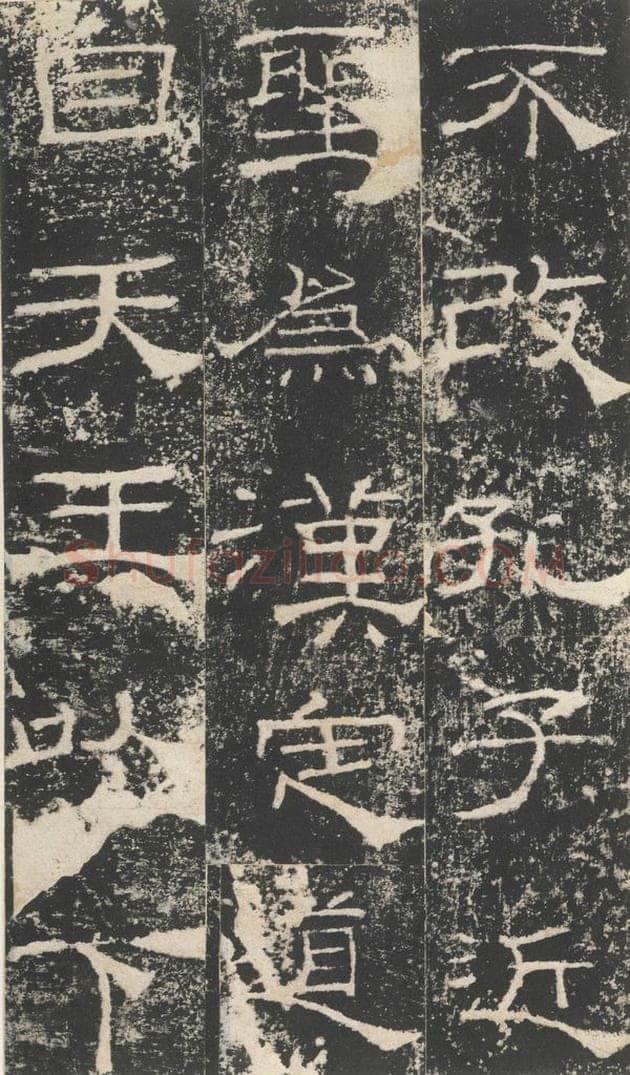 不改孔子近
聖爲漢定道
自天王以下
Shufaziliao.COM